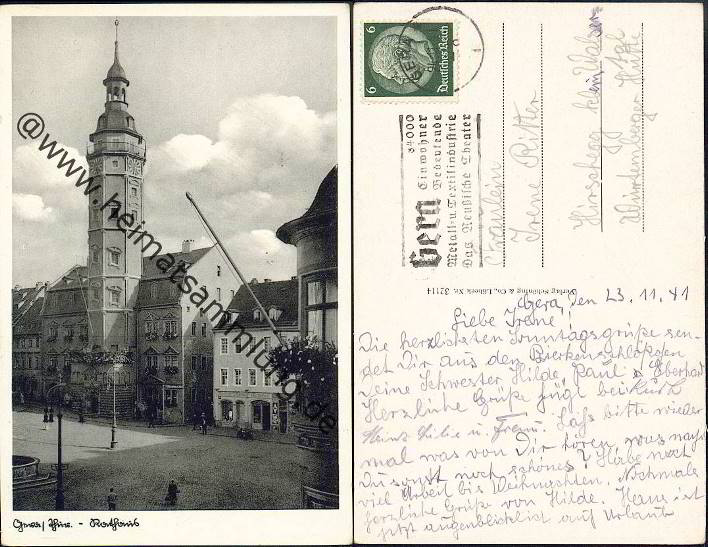 @www.heimatsammlung.de
Gera/Thür. - Rathaus
6 Deutsches Reich 6
GERA
84000
Einwohner
Bedeutende
Metall-u.Textilindustrie
Das Reußische Theater
Gera
Fräulein
Irene Ritter
Hirschegg klein Walser
Tal
Württemberger Hütte
Verlag Schöning & Co., Lübeck Nr. 32114
Gera, den 23.11.41
Liebe Irene!
Die herzlichsten Sonntagsgrüße sen-
det Dir aus den
Deine Schwester Hilde, Paul u Eberhard
Herzliche Grüße fügt bei Ruth
u. Frau. Laß bitte wieder
mal was von Dir hören, was machst
Du sonst noch schönes? Habe noch
viel Arbeit bis Weihnachten. Nochmals
herzliche Grüße von Hilde. Hans ist
jetzt augenblicklich auf Urlaub